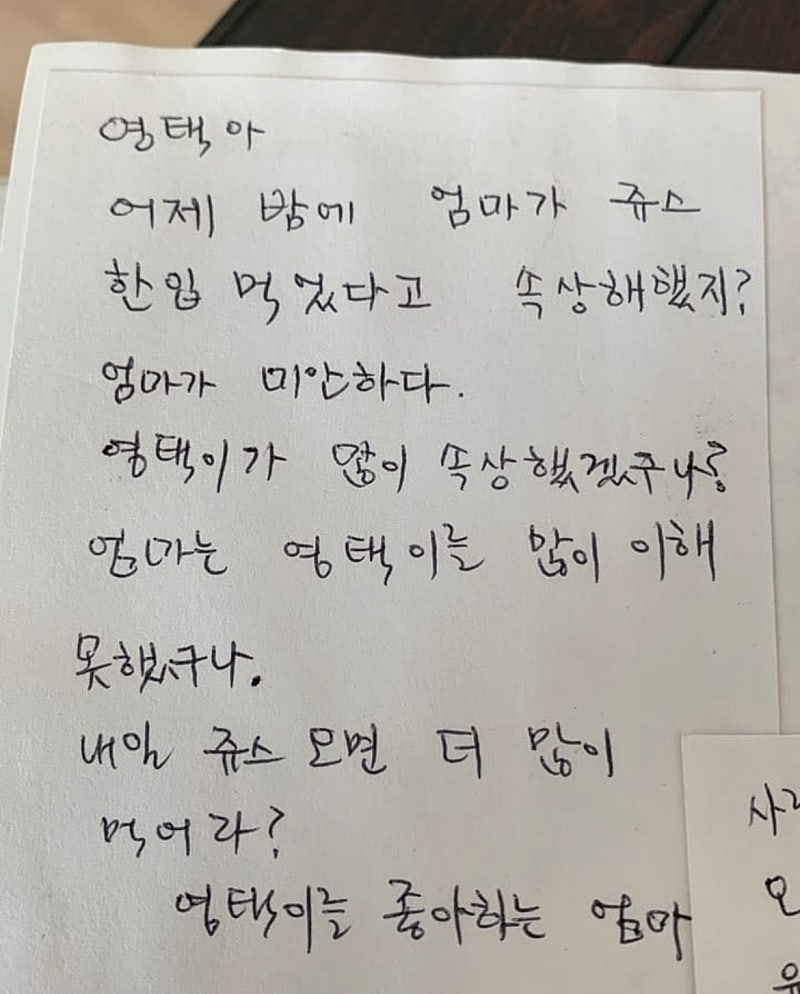 영택아
어제 밤에 엄마가 쥬스
한입 먹었다고 속상해했지?
엄마가 미안하다.
영택이가 많이 속상했겠구나?
엄마는 영택이를 많이 이해
못했구나.
내일 쥬스 오면 더 많이
먹어라?
영택이를 좋아하는 엄마